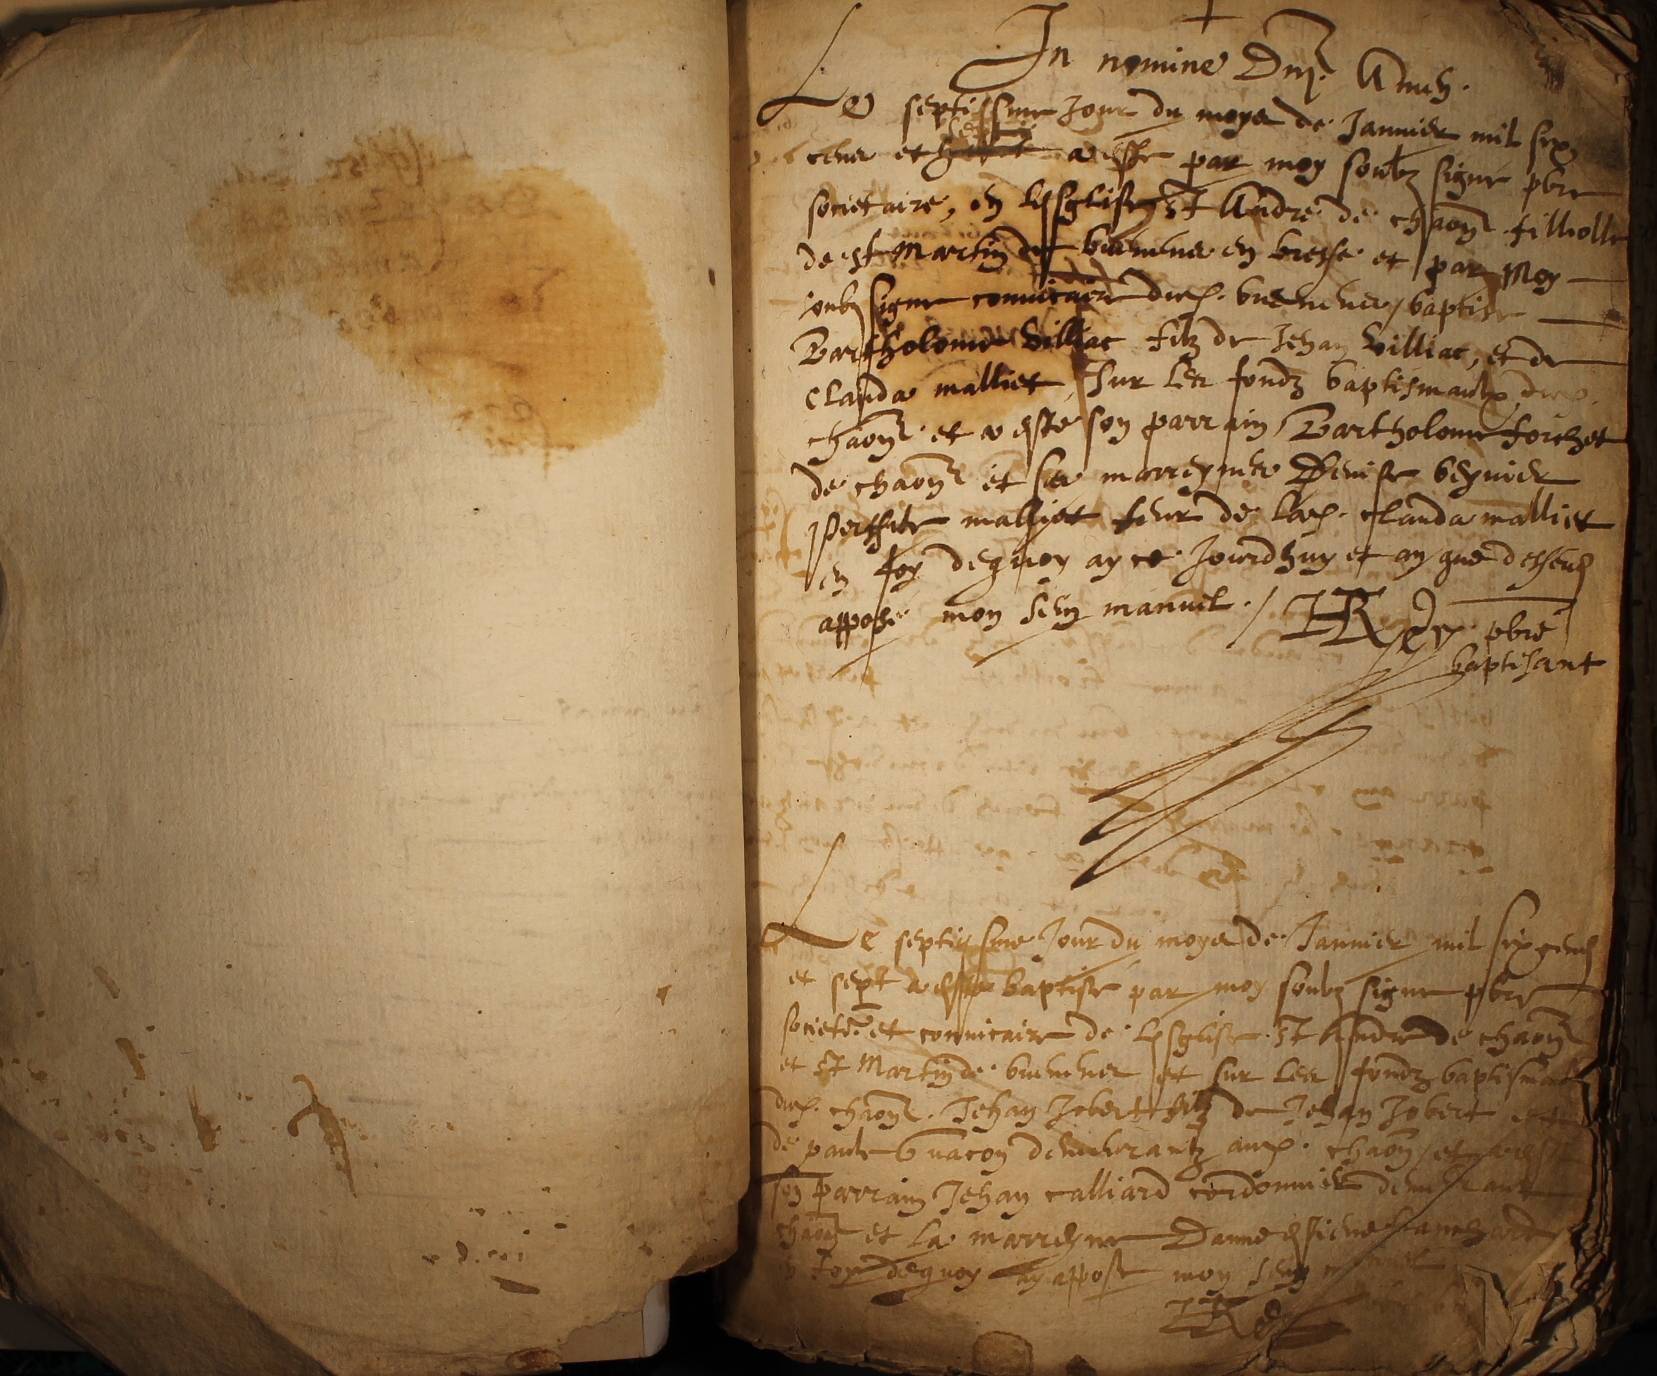 In nomine Dni. Amen.
Le septiesme Jour du moys de Janvier mil six
cens et sept a esté par moy soubz signe pbre
societaire, en lesglise St Andre de chaon filliolle
de st Martin de en bresse et par Moy
soubz signe convicaire dud. baptise
Bartholome Villiac filz de Jehan Villiac, et de
Clauda malliet sur les fondz baptismaulx dud.
chaon et a este son parrain Bartholome forchet
de chaon et ses marreynes Denise
malliet seur de lad. clauda malliet
en foy dequoy ay ce Jourdhuy et an que dessus
appose mon sein manuel. pbre
baptisant
Le septiesme Jour du moys de Janvier mil six cens
et sept a este baptise par moy soubz signe pbre
societe. et convicaire de lesglise St Andre de chaon
et St Martin de et sur les fondz baptismaulx
dud. chaon. Jehan Jobert filz de Jehan Jobert et
de paule demeurantz aud. chaon et a este
son parrain Jehan calliard cordonnier demeurant
chaon et la marreyne Danne
foy dequoy ay appose mon sein manuel